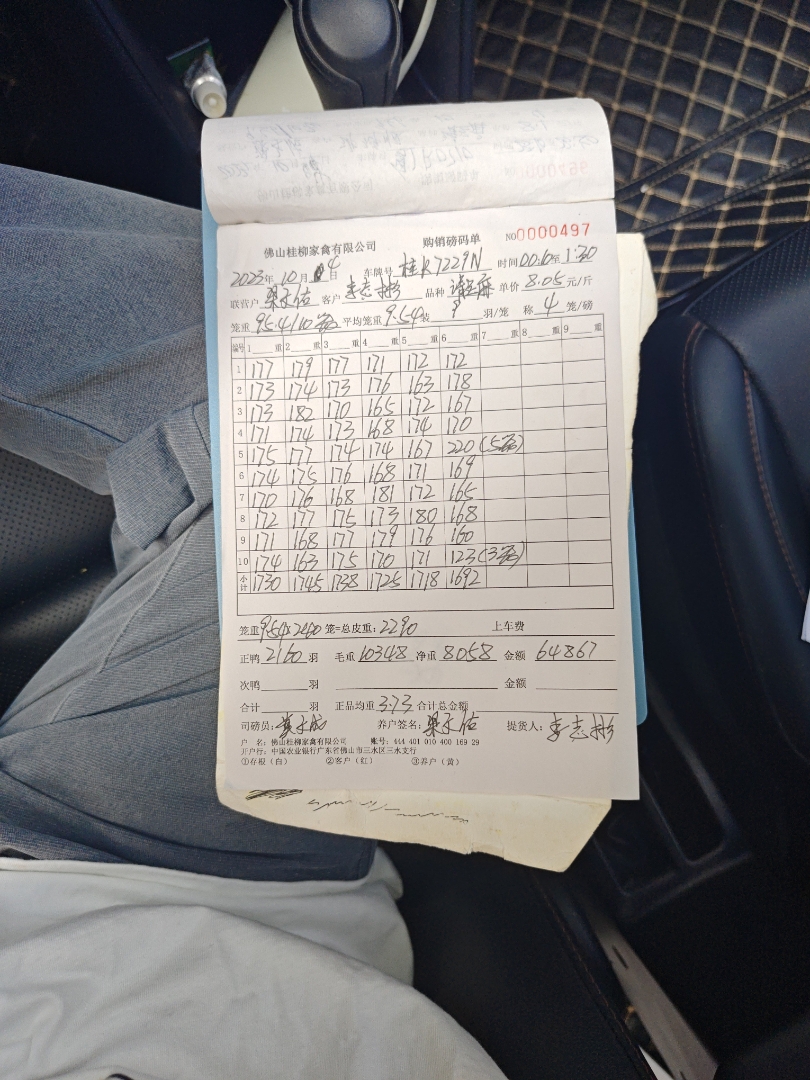 佛山桂柳家禽有限公司 购销磅码单 NO0000497
2023年 10月 4日 车牌号 桂K7229N 时间00:10至1:30
联营户 客户 李志彬 品种 单价 8.05 元/斤
笼重 95.4/10 平均笼重 9.54 装 9 羽/笼 称 4 笼/磅
编号 1 重 2 重 3 重 4 重 5 重 6 重 7 重 8 重 9 重
1 177 179 177 171 172 172
2 173 174 173 176 163 178
3 173 182 170 165 172 167
4 171 174 173 168 174 170
5 175 177 174 174 167 220 (5笼)
6 174 175 176 168 171 169
7 170 176 168 181 172 165
8 172 177 175 173 180 168
9 171 168 177 179 176 160
10 174 163 175 170 171 123 (3笼)
小计 1730 1745 1738 1725 1718 1692
笼重 9.54x240 笼=总皮重: 2290 上车费
正鸭 2160 羽 毛重 10348 净重 8058 金额 64867
次鸭 羽 金额
合计 羽 正品均重 3.73 合计总金额
司磅员: 养户签名: 提货人: 李志彬
户 名: 佛山桂柳家禽有限公司 账号: 444 401 010 400 169 29
开户行: 中国农业银行广东省佛山市三水区三水支行
①存根（白） ②客户（红） ③养户（黄）